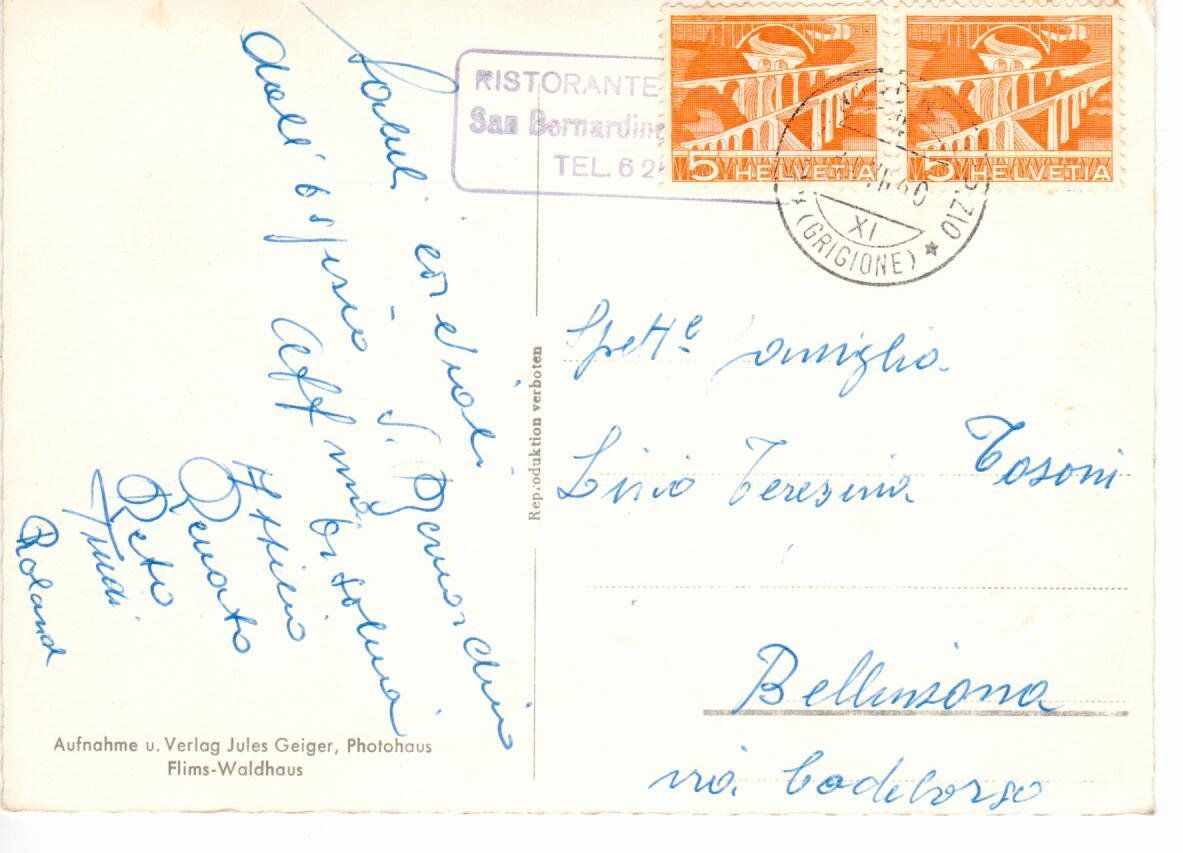 Saluti cordiali
dall'ospizio S. Bernardino
Aff.mi
Attilio
Renato
Reto
Trudi
Roland
Aufnahme u. Verlag Jules Geiger, Photohaus
Flims-Waldhaus
Reproduktion verboten
RISTORANTE
San Bernardino
TEL. 6 2
5 HELVETIA
5 HELVETIA
XI
(GRIGIONE)
Spett.e famiglia
Livio Teresina Tosoni
Bellinzona
via Codeborgo